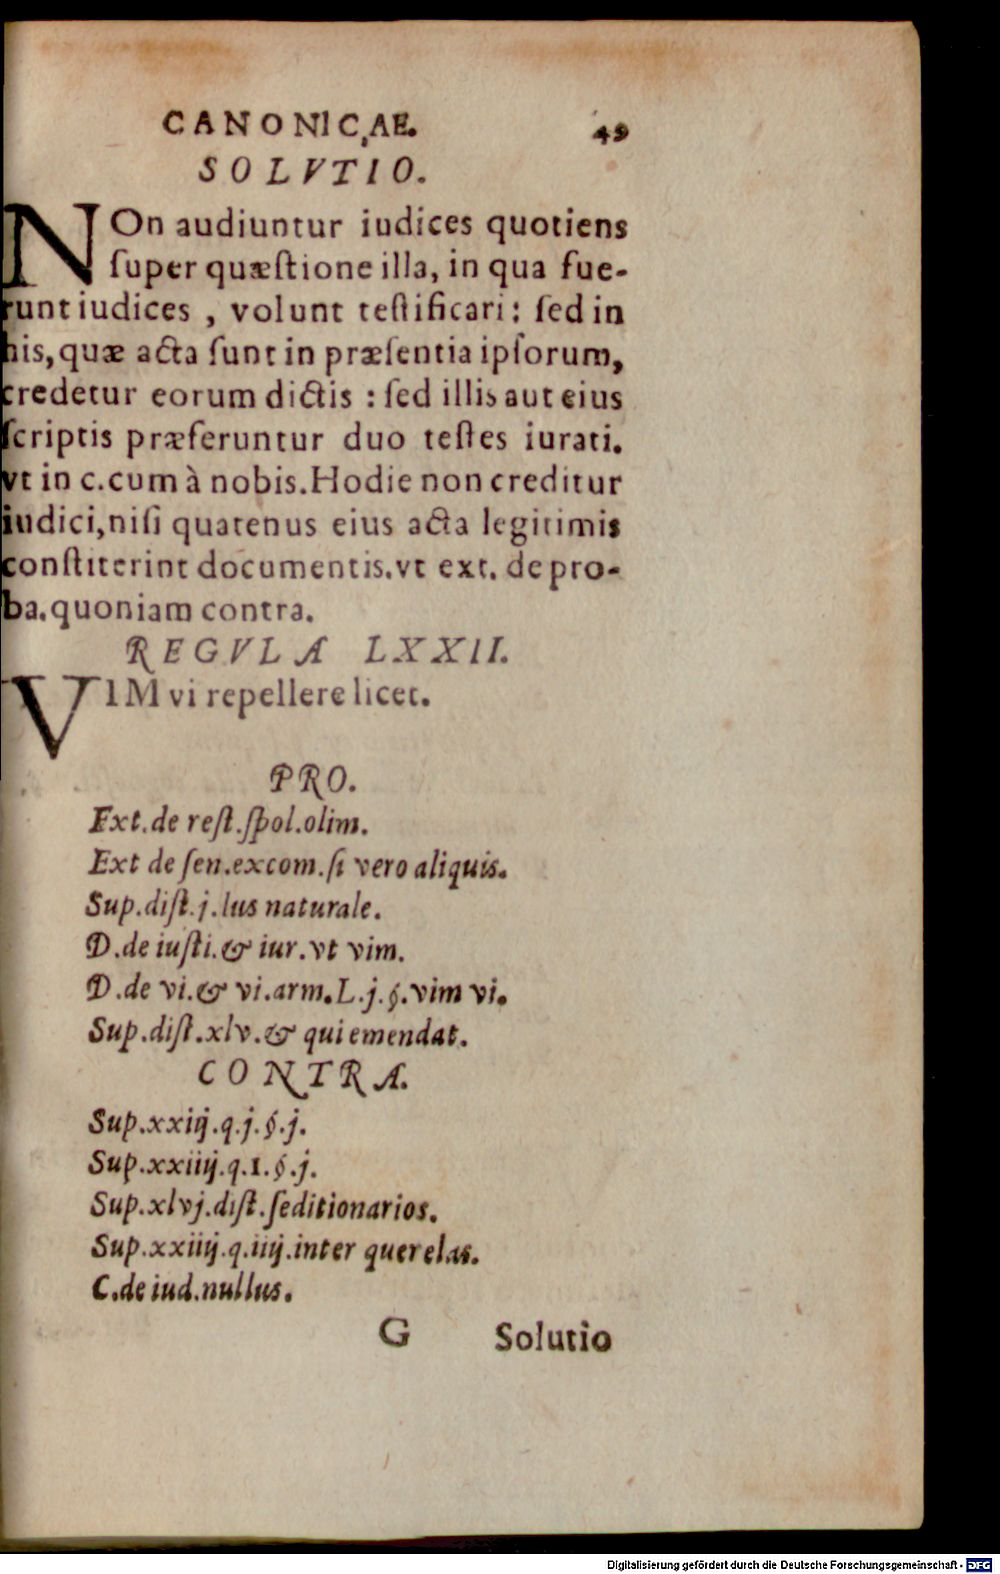 CANONICAE. 49
SOLVTIO.
NOn audiuntur iudices quotiens
ſuper quæſtione illa, in qua fue-
runt iudices , volunt teſtificari: ſed in
his, quæ acta ſunt in præſentia ipſorum,
credetur eorum dictis : ſed illis aut eius
ſcriptis præferuntur duo teſtes iurati.
vt in c.cum à nobis. Hodie non creditur
iudici, niſi quatenus eius acta legitimis
conſtiterint documentis. vt ext. de pro-
ba. quoniam contra.
REGVLA LXXII.
VIM vi repellere licet.
PRO.
Ext. de reſt. ſpol. olim.
Ext de ſen. excom. ſi vero aliquis.
Sup. diſt. j. Ius naturale.
D. de iuſti. & iur. vt vim.
D. de vi. & vi. arm. L. j. §. vim vi.
Sup. diſt. xlv. & qui emendat.
CONTRA.
Sup. xxiij. q. j. §. j.
Sup. xxiiij. q. 1. §. j.
Sup. xlvj. diſt. ſeditionarios.
Sup. xxiiij. q. iiij. inter querelas.
C. de iud. nullus.
G Solutio
Digitalisierung gefördert durch die Deutsche Forschungsgemeinschaft - DFG